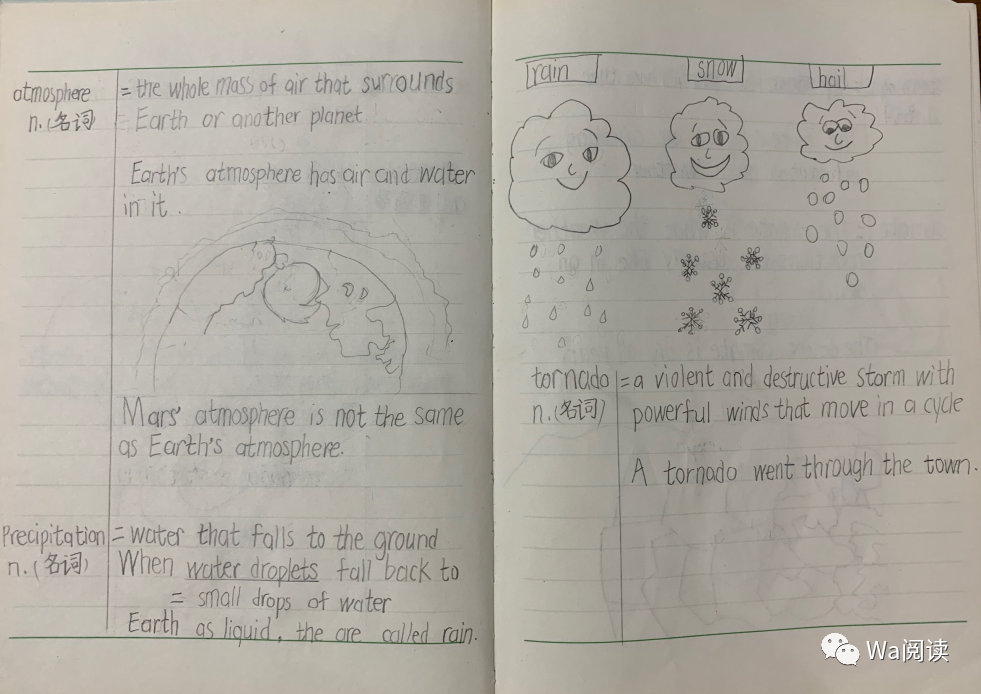 atmosphere
n.(名词)
= the whole mass of air that surrounds
= Earth or another planet.
Earth's atmosphere has air and water
in it.
Mars' atmosphere is not the same
as Earth's atmosphere.
Precipitation
n.(名词)
= water that falls to the ground
When water droplets fall back to
= small drops of water
Earth as liquid, the are called rain.
rain
snow
hail
tornado
n.(名词)
= a violent and destructive storm with
powerful winds that move in a cycle
A tornado went through the town.
Wa阅读